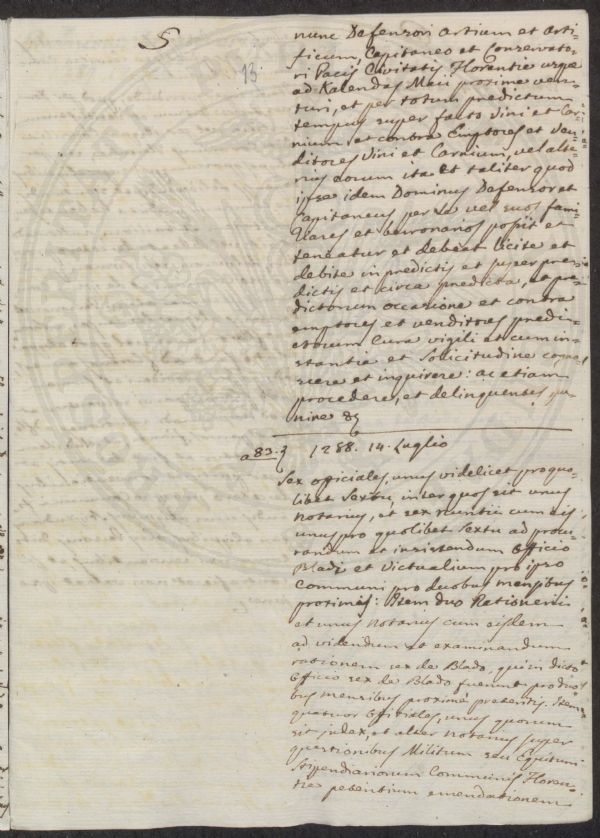 S
13.
nunc Defensori Artium et Arti=
ficum, Capitaneo et Conservato=
ri Pacis Civitatis Florentie usque
ad Kalendas Maii proxime ven=
turi, et per totum predictum
tempus super facto Vini et Car=
nium et contra Emptores et Ven=
ditores Vini et Carnium, vel alte=
rius eorum ita et taliter quod
ipse idem Dominus Defensor et
Capitaneus per se vel suos fami=
liares et berronarios possit et
teneatur et debeat licite et
debite in predictis et super pre=
dictis et circa predicta, et pre=
dictorum occasione et contra
emptores et venditores predi=
ctorum cura vigili et cum in=
stantia et solicitudine
et inquirere: ac etiam
procedere, et delinquentes pu=
nire &c
a 83. 1288. 14. Luglio
Sex officiales, unus videlicet pro quo=
libet Sextu, inter quos sit unus
notarius, et sex nuntii cum eis
unus pro quolibet Sextu ad procu=
randum et insistendum Officio
Bladi et Victualium pro ipso
Communi pro duobus mensibus
proximis: Item duo Rationerii
et unus Notarius cum eisdem
ad videndum et examinandum
rationem sex de Blado, qui in dicto
Officio sex de Blado fuerunt pro duo=
bus mensibus proxime preteritis. Item
quatuor Officiales, unus quorum
sit judex, et alter notarius super
questionibus Militum seu Equitum
Stipendiariorum Communis Floren=
tie petentium emendationem